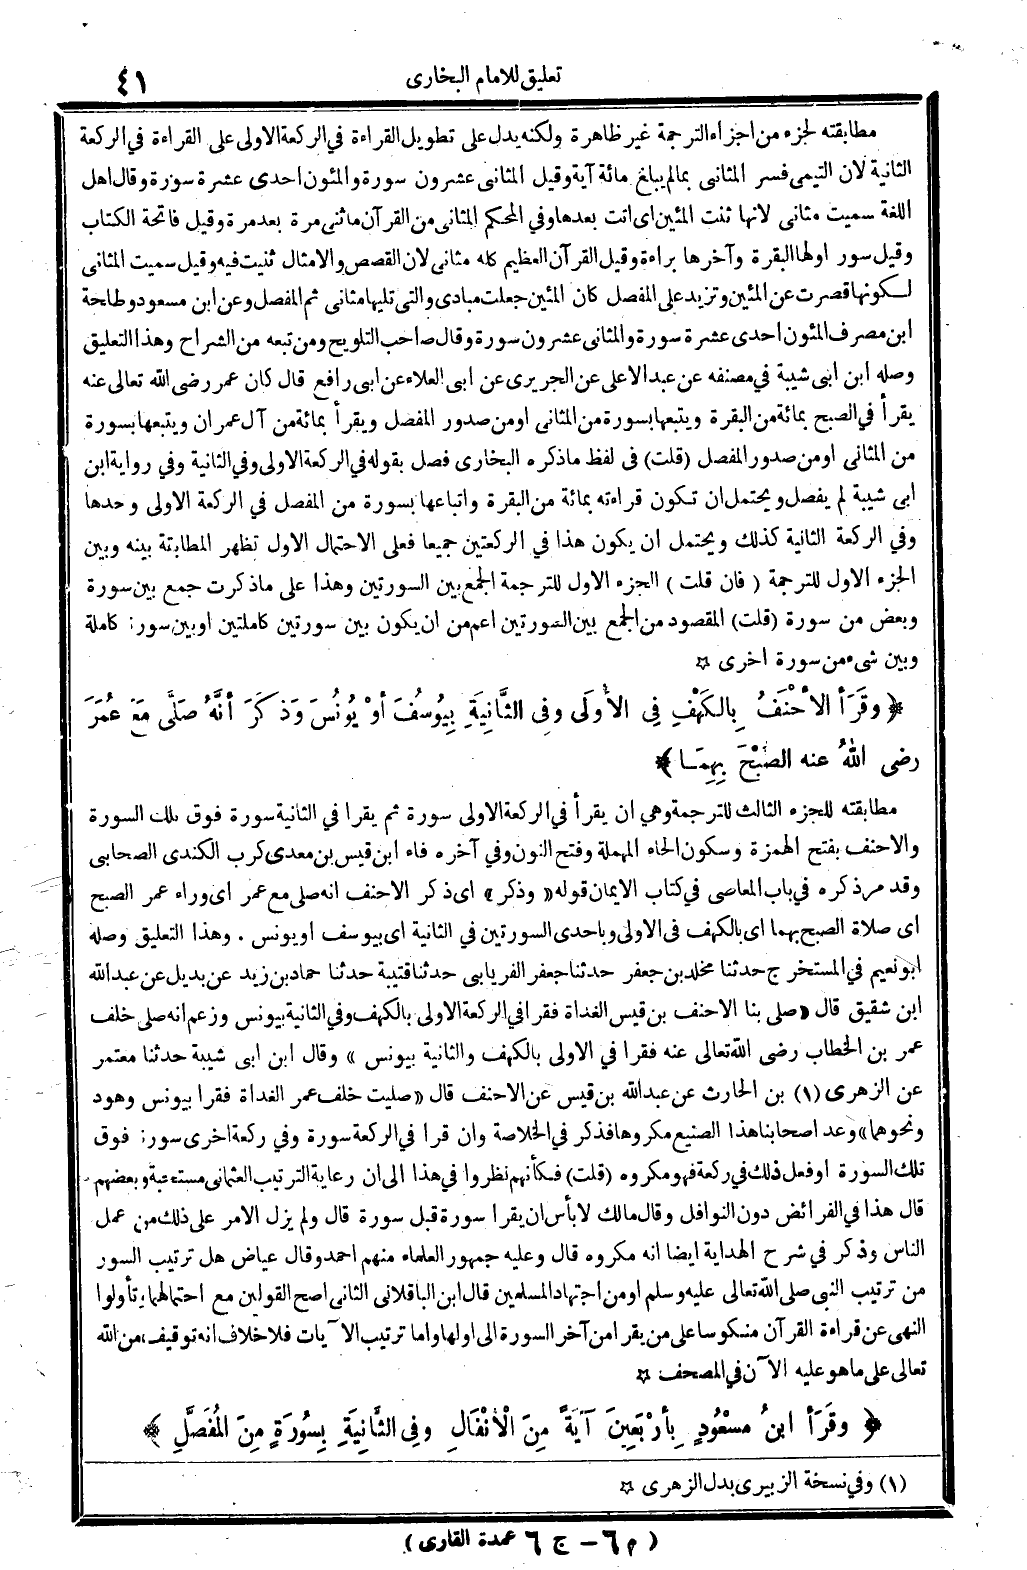 تعليق للامام البخارى ٤١
مطابقته لجزء من اجزاء الترجمة غير ظاهرة ولكنه يدل على تطويل القراءة في الركعة الاولى على القراءة في الركعة
الثانية لان التيمى فسر المثانى بمالم يبلغ مائة آية وقيل المثانى عشرون سورة والمئون احدى عشرة سورة وقال اهل
اللغة سميت مثانى لانها ثنت المئين اى اتت بعدها وفي المحكم المثانى من القرآن ماثنى مرة بعد مرة وقيل فاتحة الكتاب
وقيل سور اولها البقرة وآخرها براءة وقيل القرآن العظيم كله مثانى لان القصص والامثال ثنيت فيه وقيل سميت المثانى
لكونها قصرت عن المئين وتزيد على المفصل كان المئين جعلت مبادى والتى تليها مثانى ثم المفصل وعن ابن مسعود وطلحة
ابن مصرف المئون احدى عشرة سورة والمثانى عشرون سورة وقال صاحب التلويح ومن تبعه من الشراح وهذا التعليق
وصله ابن ابى شيبة في مصنفه عن عبد الاعلى عن الجريرى عن ابى العلاء عن ابى رافع قال كان عمر رضى الله تعالى عنه
يقرأ في الصبح بمائة من البقرة ويتبعها بسورة من المثانى اومن صدور المفصل ويقرأ بمائة من آل عمران ويتبعها بسورة
من المثانى اومن صدور المفصل (قلت) فى لفظ ماذكره البخارى فصل بقوله في الركعة الاولى وفي الثانية وفي رواية ابن
ابى شيبة لم يفصل ويحتمل ان تكون قراءته بمائة من البقرة واتباعها بسورة من المفصل في الركعة الاولى وحدها
وفي الركعة الثانية كذلك ويحتمل ان يكون هذا في الركعتين جميعا فعلى الاحتمال الاول تظهر المطابقة بينه وبين
الجزء الاول للترجمة ( فان قلت ) الجزء الاول للترجمة الجمع بين السورتين وهذا على ماذكرت جمع بين سورة
وبعض من سورة (قلت) المقصود من الجمع بين السورتين اعم من ان يكون بين سورتين كاملتين اوبين سورة كاملة
وبين شىء من سورة اخرى ☆
﴿ وقَرَأ الأحْنَفُ بِالكَهْفِ فِي الأُولَى وفِى الثَّانِيَةِ بِيُوسُفَ أوْ يُونُسَ وَذَكَرَ أنَّهُ صَلَّى مَعَ عُمَرَ
رضى اللهُ عنه الصُّبْحَ بِهِمَا ﴾
مطابقته للجزء الثالث للترجمة وهي ان يقرأ في الركعة الاولى سورة ثم يقرا في الثانية سورة فوق تلك السورة
والاحنف بفتح الهمزة وسكون الحاء المهملة وفتح النون وفي آخره فاء ابن قيس بن معدى كرب الكندى الصحابى
وقد مر ذكره في باب المعاصى في كتاب الايمان قوله « وذكر » اى ذكر الاحنف انه صلى مع عمر اى وراء عمر الصبح
اى صلاة الصبح بهما اى بالكهف فى الاولى وباحدى السورتين في الثانية اى بيوسف اويونس . وهذا التعليق وصله
ابو نعيم في المستخرج حدثنا مخلد بن جعفر حدثنا جعفر الفريابى حدثنا قتيبة حدثنا حماد بن زيد عن بديل عن عبدالله
ابن شقيق قال « صلى بنا الاحنف بن قيس الغداة فقرا في الركعة الاولى بالكهف وفي الثانية بيونس وزعم انه صلى خلف
عمر بن الخطاب رضى الله تعالى عنه فقرا في الاولى بالكهف والثانية بيونس » وقال ابن ابى شيبة حدثنا معتمر
عن الزهرى (١) بن الحارث عن عبدالله بن قيس عن الاحنف قال « صليت خلف عمر الغداة فقرا بيونس وهود
ونحوهما » وعد اصحابنا هذا الصنيع مكروها فذكر في الخلاصة وان قرا في الركعة سورة وفي ركعة اخرى سورة فوق
تلك السورة اوفعل ذلك في ركعة فهو مكروه (قلت) فكأنهم نظروا في هذا الى ان رعاية الترتيب العثمانى مستحبة وبعضهم
قال هذا في الفرائض دون النوافل وقال مالك لابأس ان يقرا سورة قبل سورة قال ولم يزل الامر على ذلك من عمل
الناس وذكر في شرح الهداية ايضا انه مكروه قال وعليه جمهور العلماء منهم احمد وقال عياض هل ترتيب السور
من ترتيب النبى صلى الله تعالى عليه وسلم اومن اجتهاد المسلمين قال ابن الباقلانى الثانى اصح القولين مع احتمالهما وتأولوا
النهى عن قراءة القرآن منكوسا على من يقرا من آخر السورة الى اولها واما ترتيب الآيات فلاخلاف انه توقيف من الله
تعالى على ماهو عليه الآن في المصحف ☆
﴿ وقَرَأ ابنُ مسْعُودٍ بِأرْبَعِينَ آيَةً مِنَ الأنْفَالِ وفِى الثَّانِيَةِ بِسُورَةٍ مِنَ المُفَصَّلِ ﴾
(١) وفي نسخة الزبيرى بدل الزهرى ☆
( م ٦ – ج ٦ عمدة القارى )